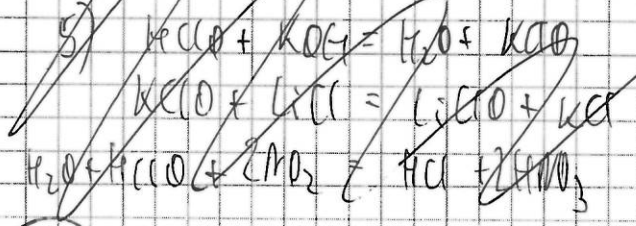 5) HClO + KOH = H₂O + KClO
KClO + LiCl = LiClO + KCl
H₂O + HClO + 2NO₂ = HCl + 2HNO₃